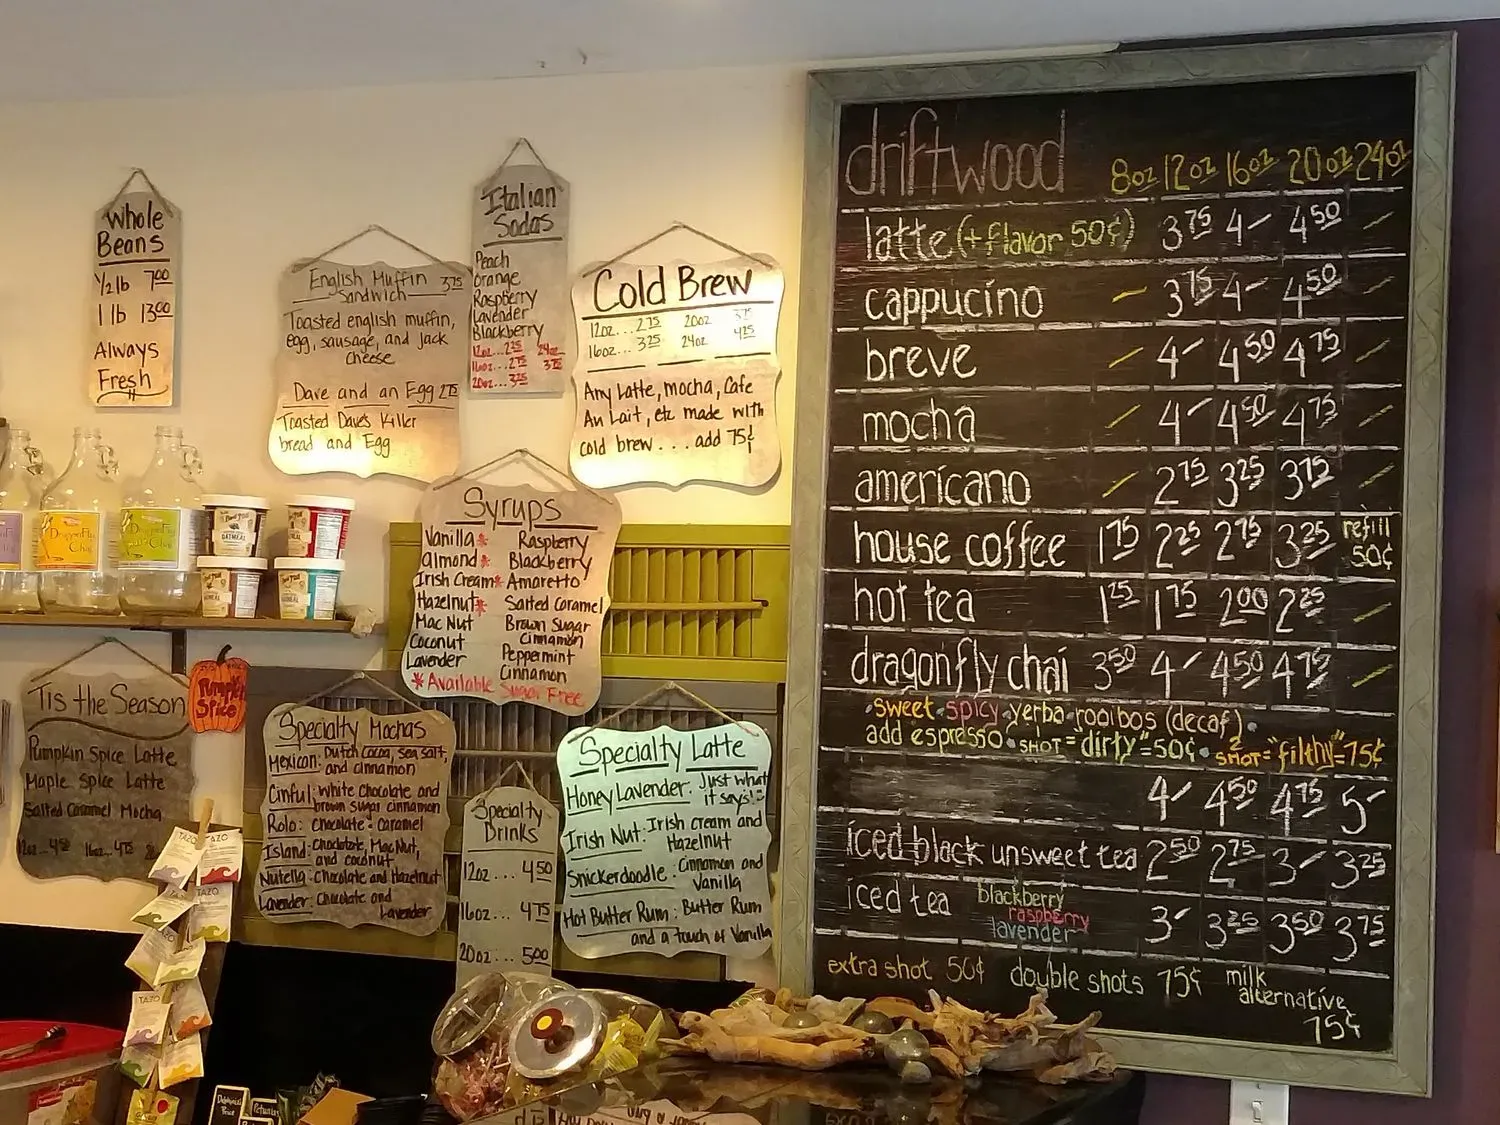 Whole
Beans
1/2 lb 7.00
1 lb 13.00
Always
Fresh
English Muffin 3.75
Sandwich
Toasted english muffin,
egg, sausage, and jack
cheese
Dave and an Egg 2.75
Toasted Dave's Killer
bread and Egg
Italian
Sodas
Peach
Orange
Raspberry
Lavender
Blackberry
12oz...2.25 24oz
16oz...2.75 3.75
20oz...3.25
Cold Brew
12oz...2.75 20oz 3.75
16oz...3.25 24oz 4.25
Any Latte, mocha, Cafe
Au Lait, etc made with
cold brew... add 75¢
Syrups
Vanilla* Raspberry
Almond* Blackberry
Irish Cream* Amaretto
Hazelnut* Salted Caramel
Mac Nut Brown Sugar
Cinnamon
Coconut Peppermint
Lavender Cinnamon
*Available Sugar Free
Tis the Season
Pumpkin Spice Latte
Maple Spice Latte
Salted Caramel Mocha
12oz...4.50 16oz...4.75
Pumpkin
Spice
Specialty Mochas
Mexican: Dutch Cocoa, sea salt,
and cinnamon
Cinful: White chocolate and
brown sugar cinnamon
Rolo: Chocolate + Caramel
Island: Chocolate, Mac Nut,
and coconut
Nutella: Chocolate and Hazelnut
Lavender: Chocolate and
Lavender
Specialty
Drinks
12oz... 4.50
16oz... 4.75
20oz... 5.00
Specialty Latte
Honey Lavender: Just what
it says!
Irish Nut: Irish cream and
Hazelnut
Snickerdoodle: Cinnamon and
Vanilla
Hot Butter Rum: Butter Rum
and a touch of Vanilla
driftwood 8oz 12oz 16oz 20oz 24oz
latte (+flavor 50¢) 3.75 4- 4.50 -
cappucino - 3.75 4- 4.50 -
breve - 4- 4.50 4.75 -
mocha - 4- 4.50 4.75 -
americano - 2.75 3.25 3.75 -
house coffee 1.75 2.25 2.75 3.25 refill 50¢
hot tea 1.25 1.75 2.00 2.25 -
dragonfly chai 3.50 4- 4.50 4.75 -
•sweet •spicy •yerba •rooibos (decaf)•
add espresso • shot="dirty"=50¢ • 2 shot="filthy"=75¢
4- 4.50 4.75 5-
iced black unsweet tea 2.50 2.75 3- 3.25
iced tea blackberry
raspberry
lavender 3- 3.25 3.50 3.75
extra shot 50¢ double shots 75¢ milk
alternative
75¢
TAZO
TAZO
TAZO
TAZO